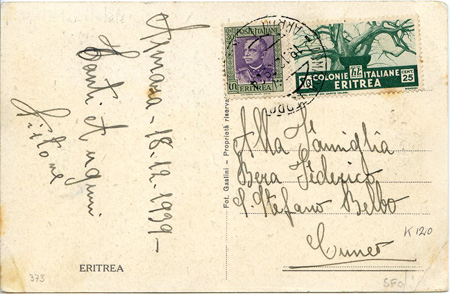 Asmara - 18.12.1939 -
Tanti Auguri
POSTE ITALIANE
ERITREA
COLONIE ITALIANE
ERITREA
CENT 25
Alla Famiglia
Bera Federico
S. Stefano Belbo
Cuneo
Fot. Gaslini - Proprietà riservata
ERITREA
373
K 120
SFO